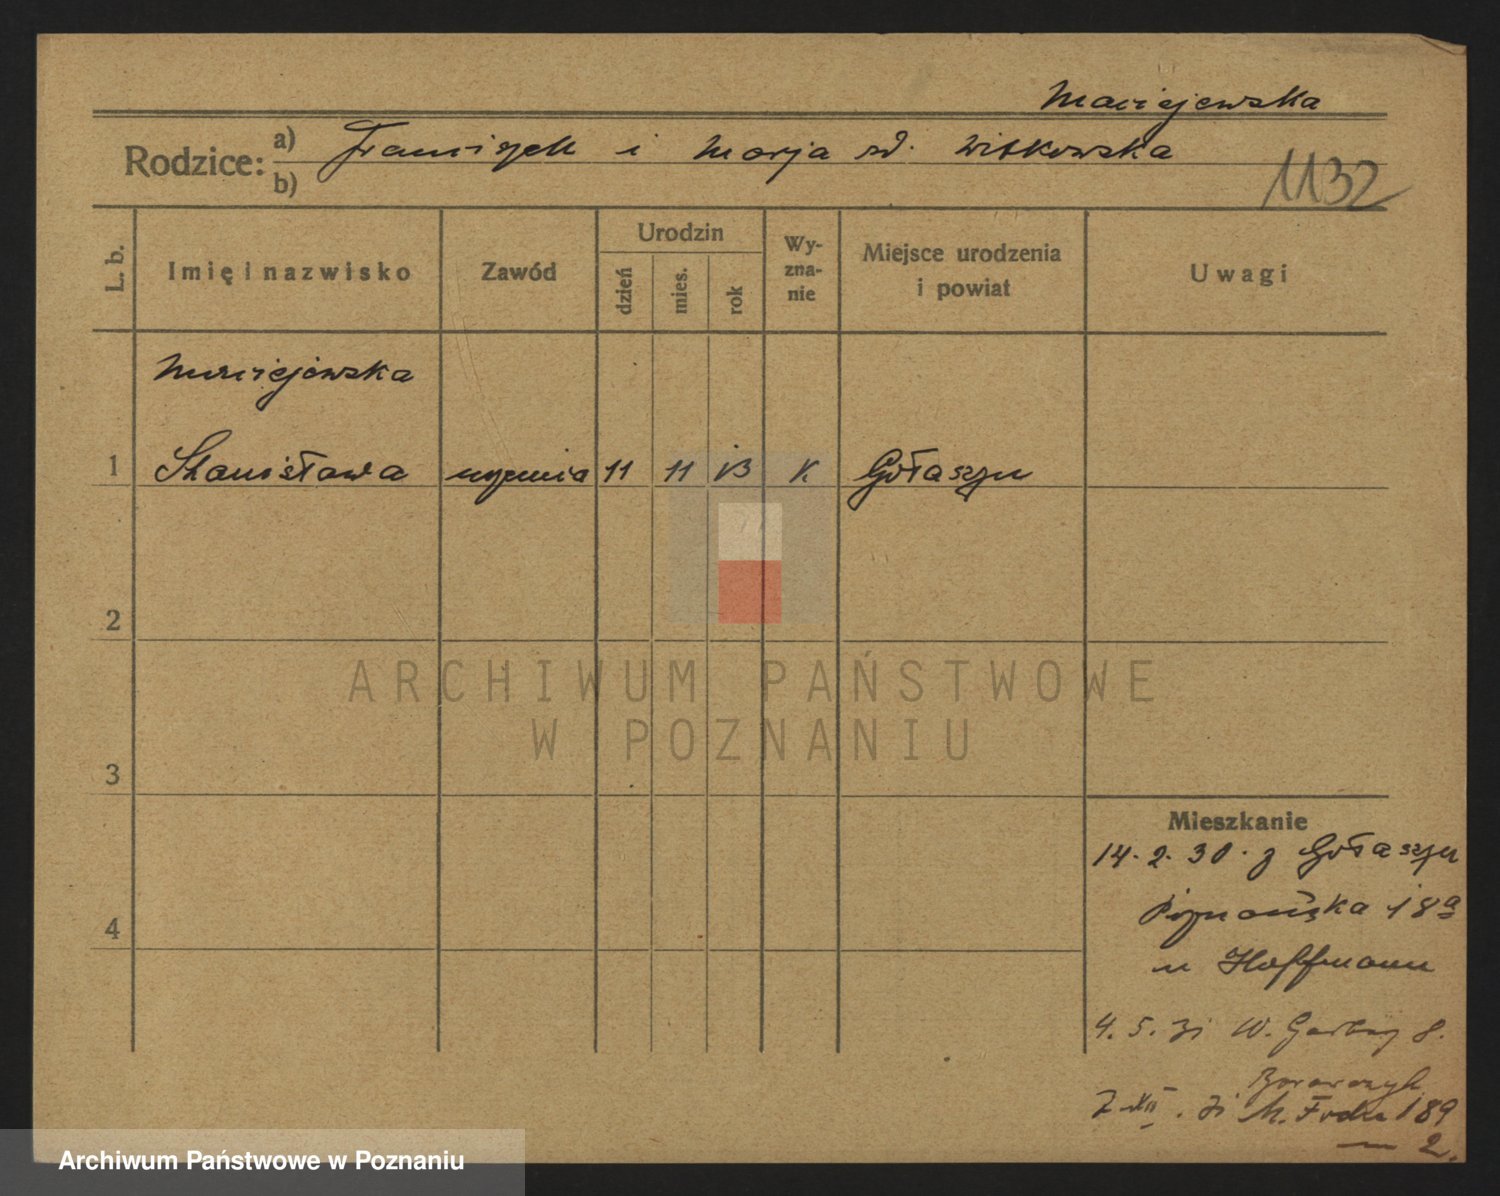 Maciejewska
Rodzice: a) Franciszek i Marja rd. Witkowska
b)
1132
L. b. Imię i nazwisko Zawód Urodzin dzień mies. rok Wy-zna-nie Miejsce urodzenia i powiat Uwagi
Maciejewska
1 Stanisława uczenica 11 11 13 K Gołaszyn
2
3
4
Mieszkanie
14.2.30. z Gołaszyn
Poznańska 18a
u Hoffmann
4.5.31 W. Garbary 8.
M. Focha 189
2.
ARCHIWUM PAŃSTWOWE
W POZNANIU
Archiwum Państwowe w Poznaniu